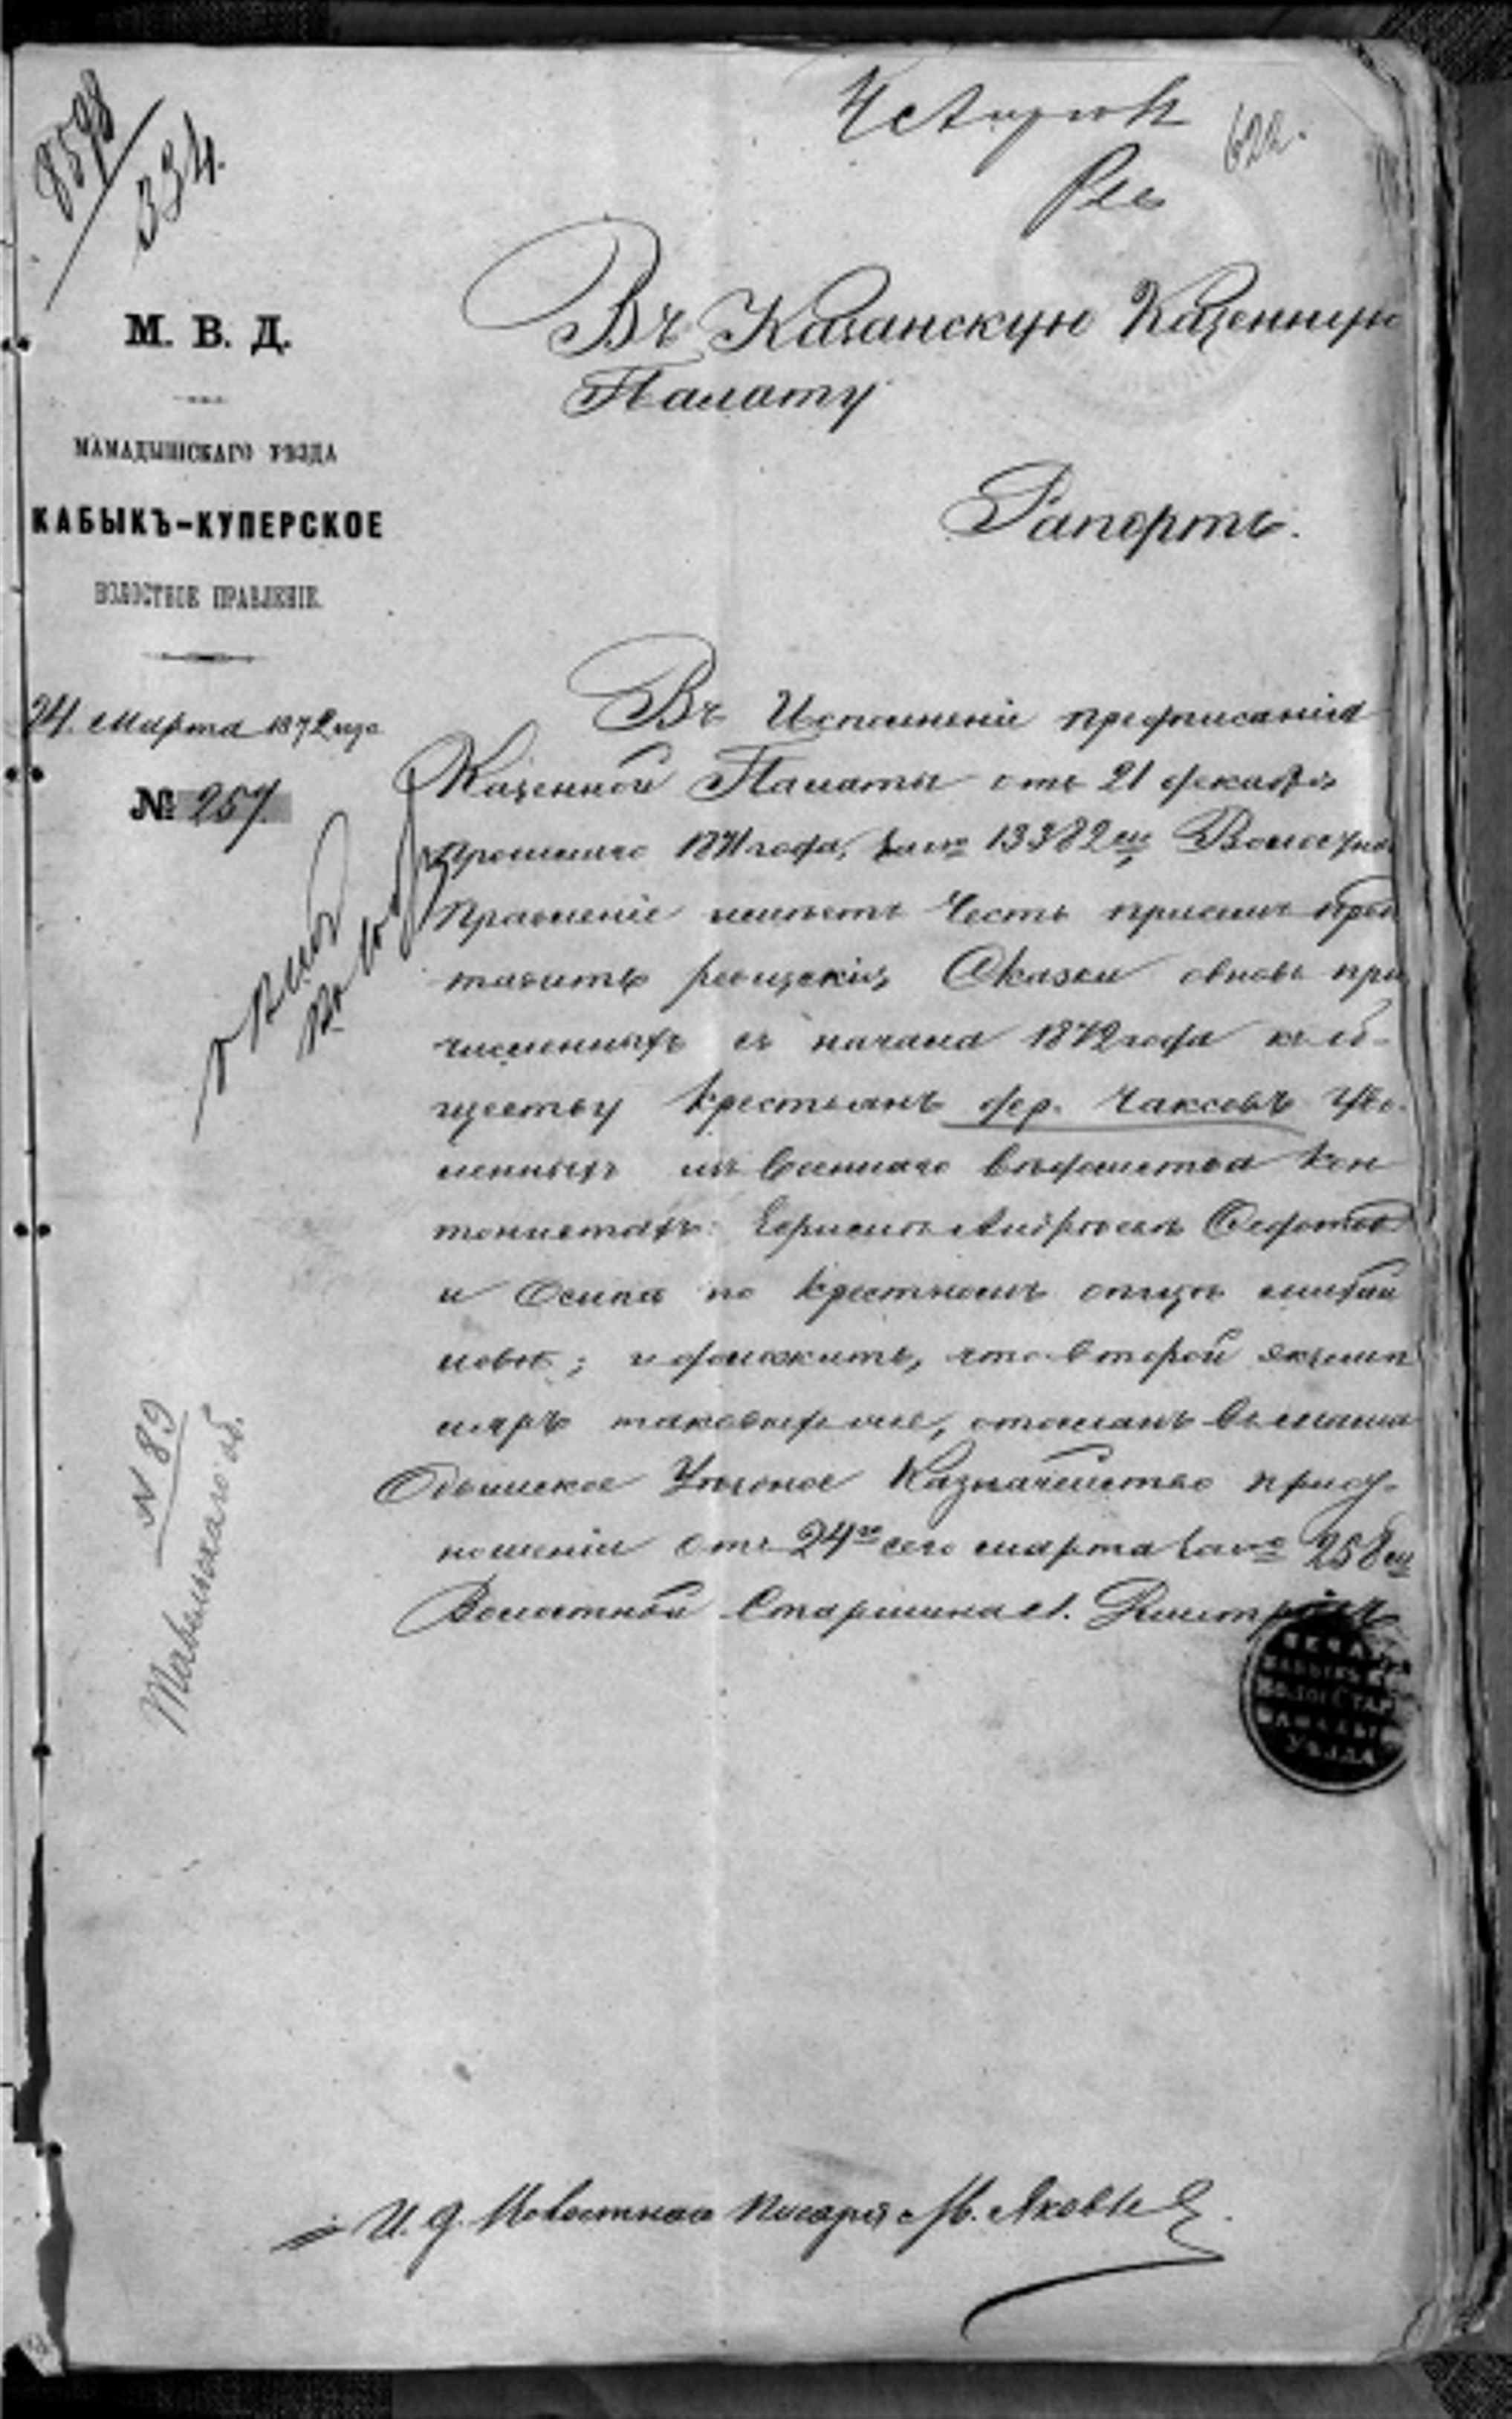 8598
334.
622.
М. В. Д.
МАМАДЫШСКАГО УѢЗДА
КАБЫКЪ-КУПЕРСКОЕ
ВОЛОСТНОЕ ПРАВЛЕНІЕ.
24. Марта 1872 года
№ 257.
Въ Казанскую Казенную
Палату
Рапортъ.
Въ Исполненіи предписанія
Казенной Палаты отъ 21 декабря
прошлаго 1871 года, за № 13382 мъ
Правленіе имѣетъ Честь при семъ
ставить ревизскія Сказки вновь при
численныхъ съ начала 1872 года къ об-
ществу Крестьянъ дер. Чаксовъ Уво-
ленныхъ изъ Военнаго вѣдомства Кон
тонистахъ: Андреевъ Федотов
и Осипа по Крестномъ отцѣ
; и доложить, что второй экземп
ляръ таковыхъ же, отосланъ въ Мама
дышское Уѣздное Казначейство при от-
ношеніи отъ 24го сего марта за № 258 мъ
Волостной Старшина
ПЕЧА
КАБЫКЪ К
ВОЛОСТ СТАР
МАМАДЫ
УѢЗДА
N 89
И. д. Волостнаго Писаря М. Яковлев